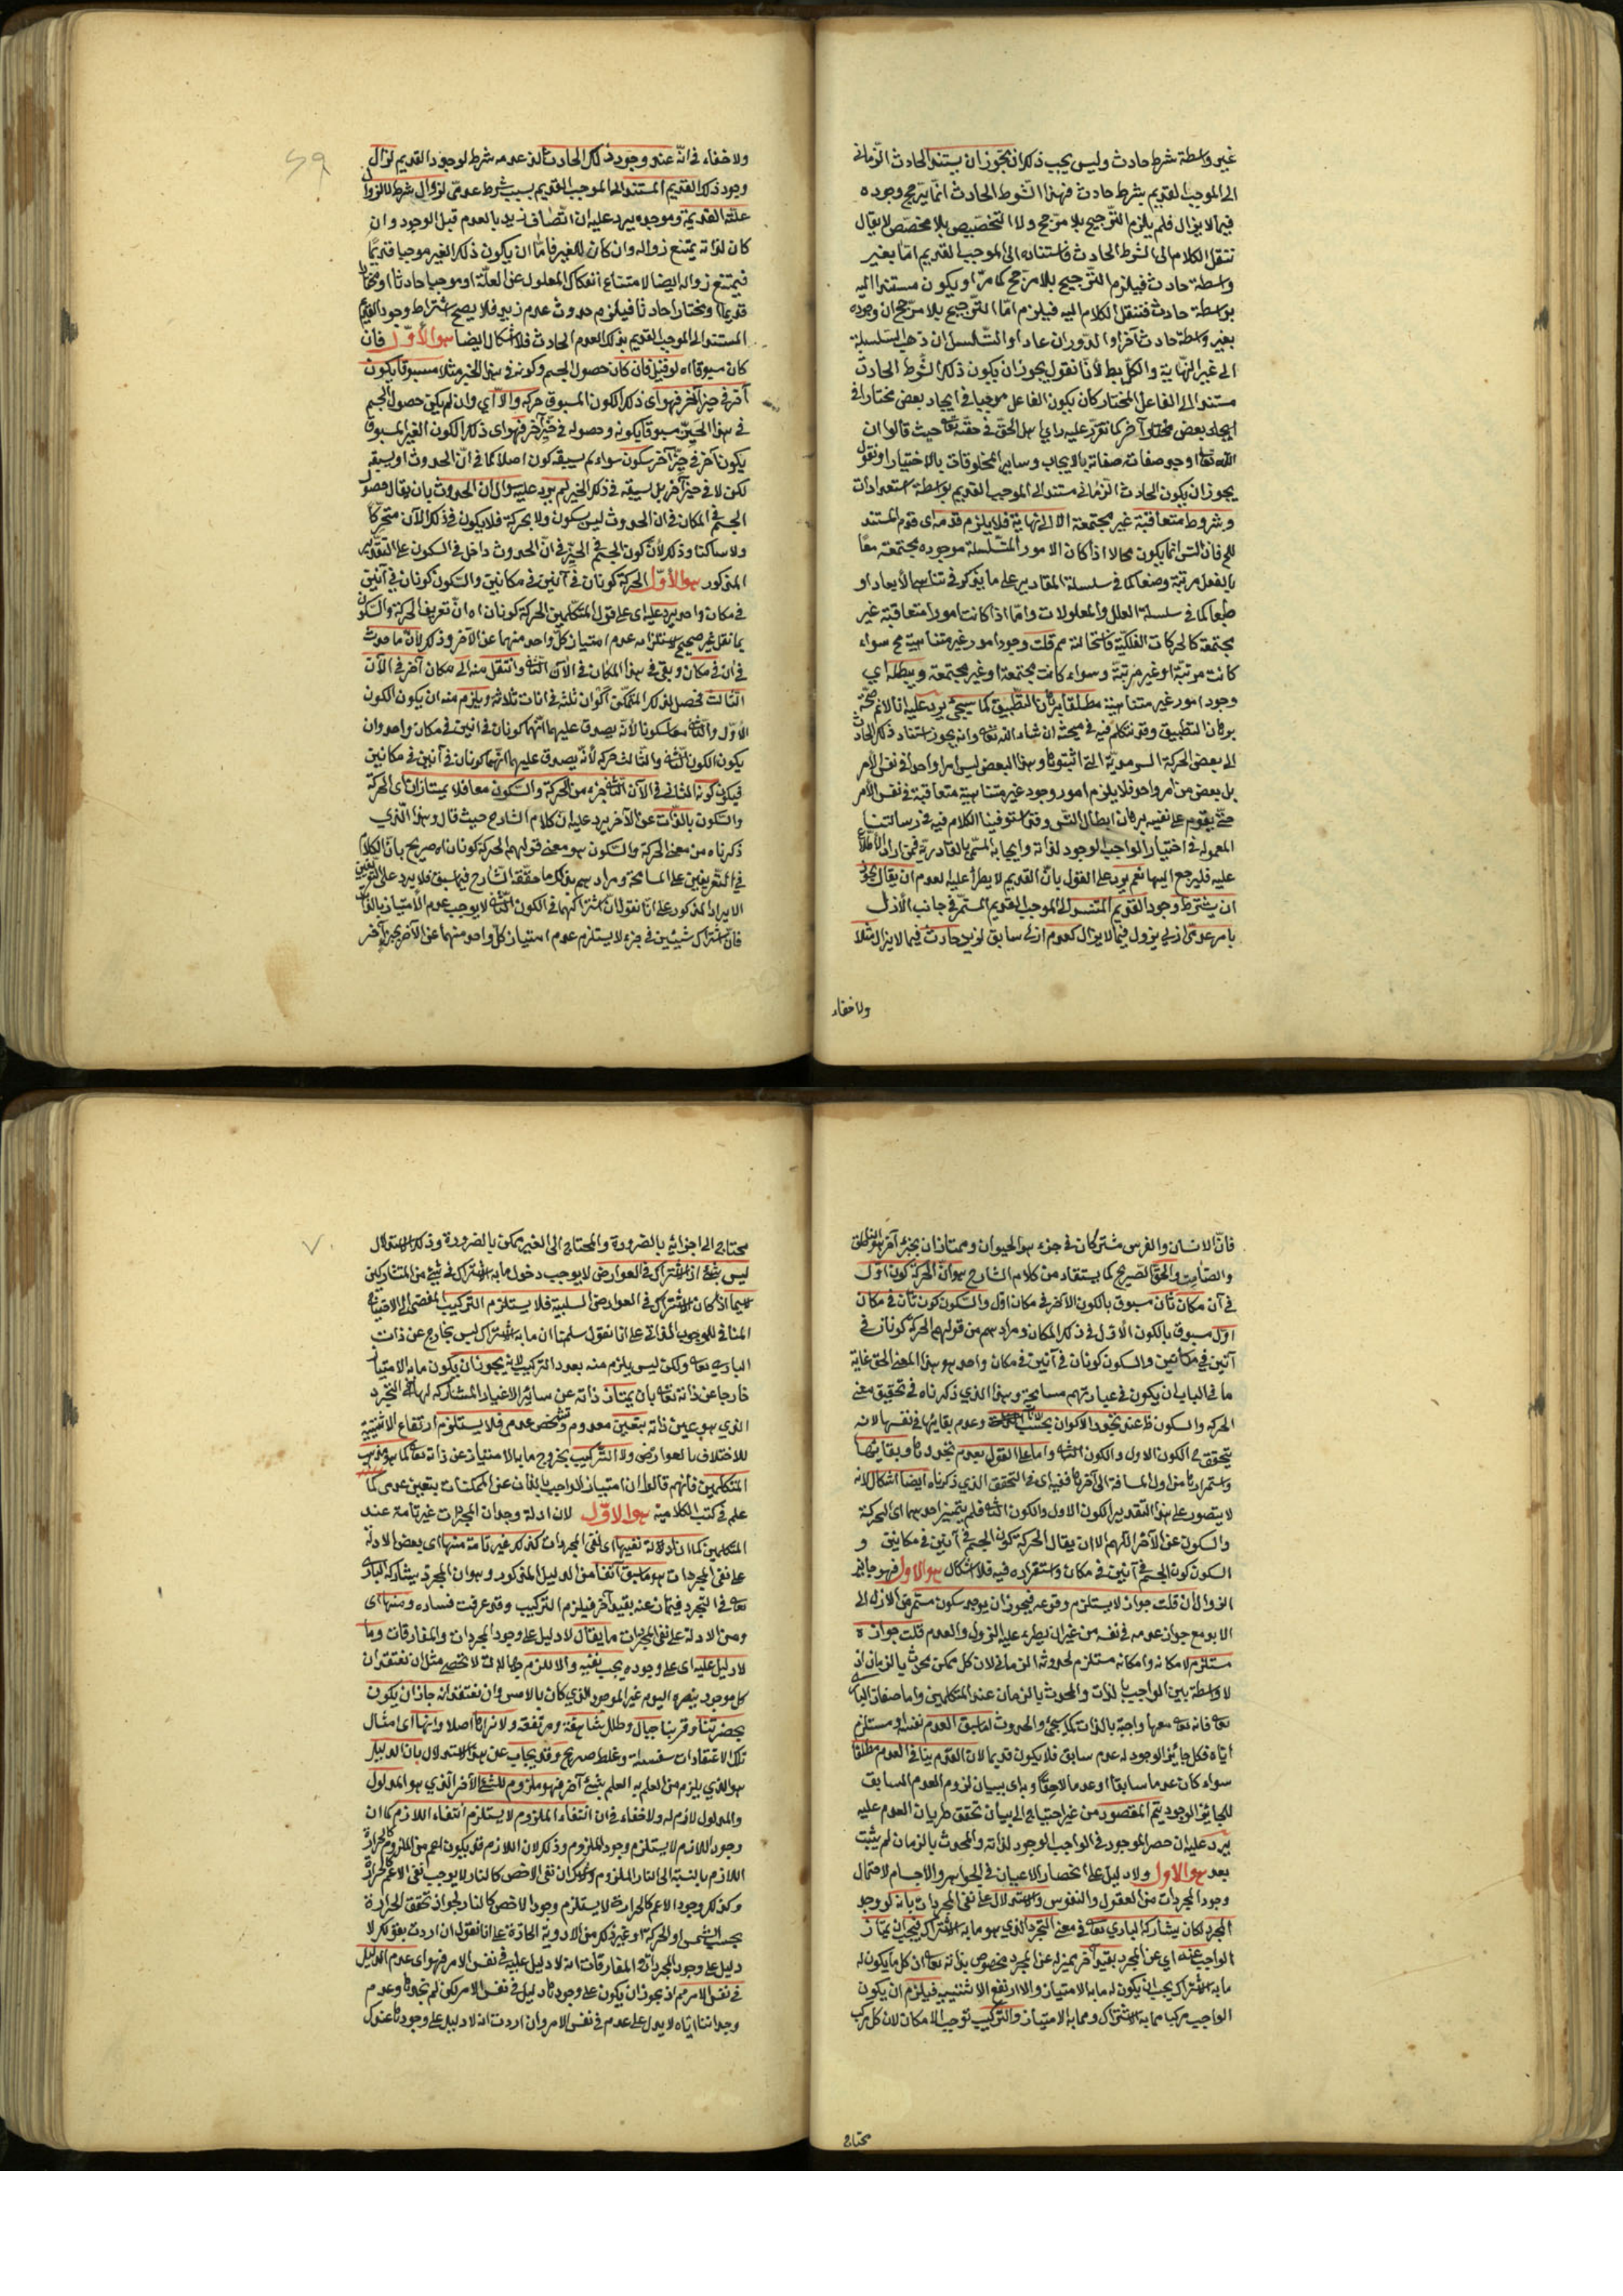 غير واسطة شرط حادث وليس يجب ذلك اذ يجوز ان يستند الحادث الزماني
الى الموجب القديم بشرط حادث فهذا الشرط الحادث انما يترجح وجوده
فيما لا يزال فلم يلزم الترجيح بلا مرجح ولا التخصيص بلا مخصص لا يقال
ننقل الكلام الى الشرط الحادث فاستناده الى الموجب القديم اما بغير
واسطة حادث فيلزم الترجيح بلا مرجح كما مر او يكون مستندا اليه
بواسطة حادث فننقل الكلام اليه فيلزم اما الترجيح بلا مرجح ان وجوده
بغير واسطة حادث آخر او الدور ان عاد او التسلسل ان ذهب السلسلة
الى غير النهاية والكل بط لانا نقول يجوز ان يكون ذلك الشرط الحادث
مستندا الى الفاعل المختار كان يكون الفاعل موجبا في ايجاد بعض مختارا في
ايجاد بعض آخر كما تقرر عليه راي اهل الحق في حقه تعا حيث قالوا ان
الله تعا اوجد صفات صفاته بالايجاب وساير المخلوقات بالاختيار او نقول
يجوز ان يكون الحادث الزماني مستندا الى الموجب القديم بواسطة استعدادات
وشروط متعاقبة غير مجتمعة الا الى نهاية فلا يلزم قدمه اى قدم المستند
فان التس انما يكون محالا اذا كان الامور المتسلسلة موجوده مجتمعة معا
بالفعل مرتبة وضعا كما في سلسلة المقادير على ما يذكر في تناهي الابعاد او
طبعا كما في سلسلة العلل والمعلولات واما اذا كانت امورا متعاقبة غير
مجتمعة كالحركات الفلكية فاستحالته مم قلت وجود امور غير متناهية مح سواء
كانت مرتبة او غير مرتبة وسواء كانت مجتمعة او غير مجتمعة ويبطله اي
وجود امور غير متناهية مطلقا برهان التطبيق كما سيجئ يرد عليه انا لانم صحة
برهان التطبيق وقد نتكلم فيه في مبحثه ان شاء الله تعا وانه يجوز استناد ذلك الحادث
الى بعض الحركة السرمدية التي اثبتوها وهذا البعض ليس امرا واحدا في نفس الامر
بل بعض من امر واحد فلا يلزم امور وجود غير متناهية متعاقبة في نفس الامر
حتى يقوم على نفيه برهان ابطال التس وقد استوفينا الكلام فيه في رسالتنا
المعمولة في اختيار الواجب الوجود لذاته وايجابه المسمى بالقادرية فمن اراد الاطلاع
عليه فليرجع اليها نعم يرد على القول بان القديم لا يطرأ عليه العدم ان يقال يجوز
ان يشترط وجود القديم المستند الى الموجب القديم المستمر في جانب الازل
بامر عدمي ازلي يزول فيما لا يزال كعدم ازلي سابق لزيد حادث فيما لا يزال مثلا
ولا خفاء
ولا خفاء في انه عند وجود ذلك الحادث الذي عدمه شرط لوجود القديم لزال
وجود ذلك القديم المستند الى الموجب القديم بسبب شرط عدمي لزوال شرط لا لزوال
علته القديمة وموجده يرد عليه ان اتصاف زيد بالعدم قبل الوجود وان
كان لذاته يمتنع زواله وان كان للغير فاما ان يكون ذلك الغير موجبا قديما
فيمتنع زواله ايضا لامتناع انفكاك المعلول عن العلة او موجبا حادثا او مختارا
قديما او مختارا حادثا فيلزم حدوث عدم زيد فلا يصح اشتراط وجود القديم
المستند الى الموجب القديم بذلك العدم الحادث فلا اشكال ايضا هو الأول فان
كان مسبوقا اه لو قيل فان كان حصول الجسم وكونه في هذا الحيز مثلا مسبوقا بكون
آخر في حيز آخر فهو اى ذلك الكون المسبوق حركه والا اي وان لم يكن حصول الجسم
في هذا الحيز مسبوقا بكونه وحصوله في حيز آخر فهو اى ذلك الكون الغير المسبوق
بكون آخر في حيز آخر سكون سواء لم يسبقه كون اصلا كما في ان الحدوث او يسبقه
لكن لا في حيز آخر بل يسبقه في ذلك الحيز لم يرد عليه سؤال ان الحدوث بان يقال حصول
الجسم في المكان في ان الحدوث ليس بسكون ولا بحركة فلا يكون في ذلك الآن متحركا
ولا ساكنا وذلك لان كون الجسم في الحيز في ان الحدوث داخل في السكون على التقدير
المذكور هو الأول الحركة كونان في آنين في مكانين والسكون كونان في آنين
في مكان واحد يرد عليه اى على قول المتكلمين الحركة كونان اه ان تعريف الحركة والسكون
بما نقل غير صحيح لاستلزامه عدم امتياز كل واحد منهما عن الآخر وذلك لان ما حدث
في ان في مكان وبقي في هذا المكان في الآن الثاني وانتقل منه الى مكان آخر في الآن
الثالث فحصل لذلك المتمكن اكوان ثلثه في انات ثلاثة ويلزم منه ان يكون الكون
الأول والثاني معا سكونا لانه يصدق عليهما انهما كونان في آنين في مكان واحد وان
يكون الكون الثاني والثالث حركه لانه يصدق عليهما انهما كونان في آنين في مكانين
فيكون كونه الثاني في الآن الثاني جزء من الحركة والسكون معا فلا يمتازان اى الحركة
والسكون بالذات عن الآخر يرد عليه ان كلام الشارح حيث قال وهذا الذي
ذكرناه من معنى الحركة والسكون هو معنى قولهم الحركة كونان اه صريح بان الكلام
في التعريفين على المسامحة ومرادهم بذلك ما حققه الشارح فيما سبق فلا يرد على التعريفين
الايراد المذكور على انا نقول ان اشتراكهما في الكون الثاني لا يوجب عدم الامتياز بالذات
فان اشتراك شيئين في جزء لا يستلزم عدم امتياز كل واحد منهما عن الآخر بجزء آخر
فان الانسان والفرس مشتركان في جزء هو الحيوان وممتازان بجزء آخر هو الناطق
والصامت والحق الصريح كما يستفاد من كلام الشارح هو ان الحركة كون اول
في آن مكان ثان مسبوق بالكون الآخر في مكان اول والسكون كون ثان في مكان
اول مسبوق بالكون الاول في ذلك المكان ومرادهم من قولهم الحركة كونان في
آنين في مكانين والسكون كونان في آنين في مكان واحد هو هذا المعنى الحق غاية
ما في الباب ان يكون في عبارتهم مسامحة وهذا الذي ذكرناه في تحقيق معنى
الحركه والسكون ظ عند تجدد الاكوان بحسب الآنات وعدم بقائها في نفسها لانه
يتحقق ح الكون الاول والكون الثاني واما على القول بعدم تجددها وبقائها
واستمرارها من اول المسافة الى آخرها ففيه اى في التحقيق الذي ذكرناه ايضا اشكال لانه
لا يتصور على هذا التقدير الكون الاول والكون الثاني فلم يتميز احدهما اى الحركة
والسكون عن الآخر اللهم الا ان يقال الحركة كون الجسم في آنين في مكانين و
السكون كون الجسم في آنين في مكان واستقراره فيه فلا اشكال هو الاول فهو جايز
الزوال ان قلت جوازه لا يستلزم وقوعه فيجوز ان يوجد سكون مستمر من الازل الى
الابد مع جواز عدمه في نفسه من غير ان يطرء عليه الزوال والعدم قلت جوازه
مستلزم لامكانه وامكانه مستلزم لحدوثه الزماني لان كل ممكن محدث بالزمان اذ
لا واسطة بين الواجب بالذات والمحدث بالزمان عند المتكلمين واما صفات الباري
تعا فانه تعا معها واجبة بالذات كما سيجئ والحدوث لسابق العدم نفسه او مستلزم
اياه فكل جائز الوجود له عدم سابق فلا يكون قديما لان القدم ينافي العدم مطلقا
سواء كان عدما سابقا او عدما لاحقا وباى ببيان لزوم العدم السابق
للجائز الوجود يتم المقصود من غير احتياج الى بيان تحقق طريان العدم عليه
يرد عليه ان حصر الموجود في الواجب الوجود لذاته والمحدث بالزمان لم يثبت
بعد هو الاول ولا دليل على انحصار الاعيان في الجواهر والاجسام لاحتمال
وجود المجردات من العقول والنفوس والاستدلال على نفي المجردات بانه لو وجد
المجرد لكان يشاركه الباري تعا في معنى التجرد الذي هو ما به الاشتراك فيجب ان يمتاز
الواجب عنه اي عن المجرد بقيد آخر يميزه عن المجرد مخصوص بذاته تعا اذ كل ما يكون له
ما به الاشتراك يجب ان يكون له ما به الامتياز والا ارتفع الاثنينيه فيلزم ان يكون
الواجب مركبا مما به الاشتراك ومما به الامتياز والتركيب يوجب الامكان لان كل مركب
محتاج
محتاج الى اجزائه بالضرورة والمحتاج الى الغير ممكن بالضرورة وذلك الاستدلال
ليس بشئ اذ الاشتراك في العوارض لا يوجب دخول ما به الاشتراك في شئ من المتشاركين
لا سيما اذا كان الاشتراك في العوارض السلبية فلا يستلزم التركيب المفضي الى الاحتياج
المنافي للوجوب الذاتي على انا نقول سلمنا ان ما به الاشتراك ليس بخارج عن ذات
الباري تعا ولكن ليس يلزم منه بعد التركيب اذ يجوز ان يكون ما به الامتياز
خارجا عن ذاته تعا بان يمتاز ذاته عن سائر الاغيار المشاركه لها في التجرد
الذي هو عين ذاته بتعين معدوم وتشخص عدمي فلا يستلزم ارتفاع الاثنينية
للاختلاف بالعوارض ولا التركيب بخروج ما به الامتياز عن ذاته تعا كما هو مذهب
المتكلمين فانهم قالوا ان امتياز الواجب بالذات عن الممكنات بتعين عدمي كما
علم في كتب الكلامية هو الاول لان ادلة وجدان المجردات غير تامة عند
المتكلمين كما ان ادلة نفيها اى نفي المجردات كذلك غير تامة منها اى بعض الادلة
على نفي المجردات هو ما سبق آنفا من الدليل المذكور وهو ان المجرد يشاركه الباري
تعا في التجرد فيمتاز عنه بقيد آخر فيلزم التركيب وقد عرفت فساده ومنها اى
ومن الادلة على نفي المجردات ما يقال لا دليل على وجود المجردات والمفارقات وما
لا دليل عليه اى على وجوده يجب نفيه والا للزم جهالات لا تحصى مثل ان نعتقد ان
كل موجود نبصره اليوم غير الموجود الذي كان بالامس وان نعتقد انه جاز ان يكون
بحضرتنا وقربنا جبال وطلل شاهقة ومرتفعة ولا نراها اصلا وانها اى امثال
تلك الاعتقادات سفسطة وغلط صريح وقد يجاب عن هذا الاستدلال بان الدليل
هو الذي يلزم من العلم به العلم بشئ آخر فهو ملزوم للشئ الآخر الذي هو المدلول
والمدلول لازم له ولا خفاء في ان انتفاء الملزوم لا يستلزم انتفاء اللازم كما ان
وجود اللازم لا يستلزم وجود الملزوم وذلك لان اللازم قد يكون اعم من الملزوم كالحرارة
اللازم بالنسبة الى النار الملزوم وكما ان نفي الاخص كالنار لا يوجب نفي الاعم كالحرارة
وكذلك وجود الاعم كالحرارة لا يستلزم وجود الاخص كالنار لجواز تحقق الحرارة
بحسب الشمس او الحركة او غير ذلك من الادوية الحارة على انا نقول ان اردت بقولك لا
دليل على وجود المجردات والمفارقات انه لا دليل عليه في نفس الامر فهو اى عدم الدليل
في نفس الامر مم اذ يجوز ان يكون على وجودها دليل في نفس الامر لكن لم نجدها وعدم
وجداننا اياه لا يدل على عدم في نفس الامر وان اردت انه لا دليل على وجودها عندك